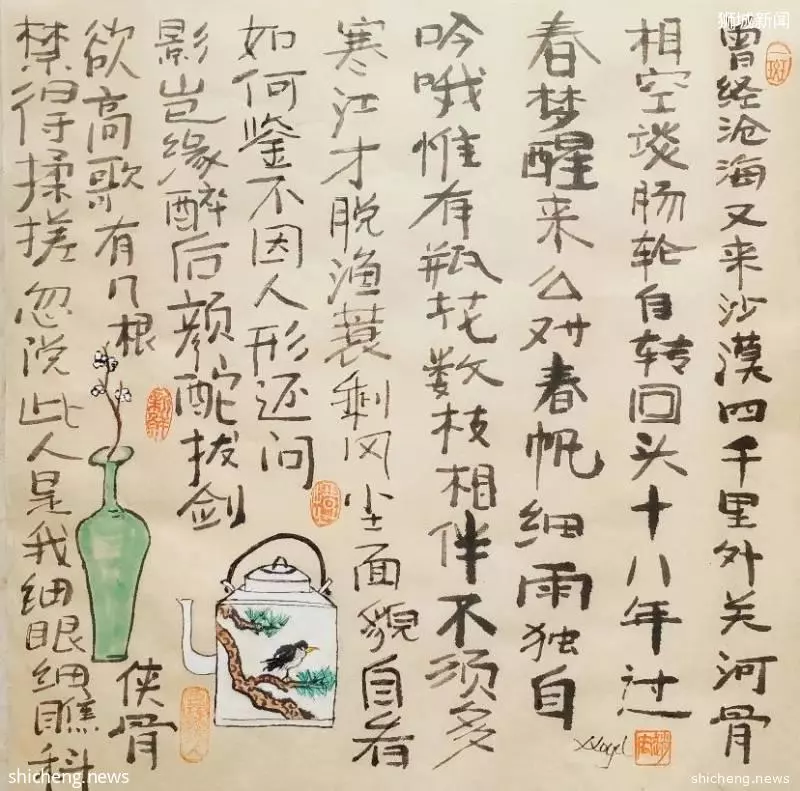 狮城新闻
曾经沧海又来沙漠四千里外关河骨
相空谈肠轮自转回头十八年过
春梦醒来么对春帆细雨独自
吟哦惟有瓶花数枝相伴不须多
寒江才脱渔蓑剩风尘面貌自看
如何鉴不因人形还问
影岂缘醉后颜酡拔剑
欲高歌有几根侠骨
禁得揉搓忽说此人是我细眼细瞧科
shicheng.news
shicheng.news